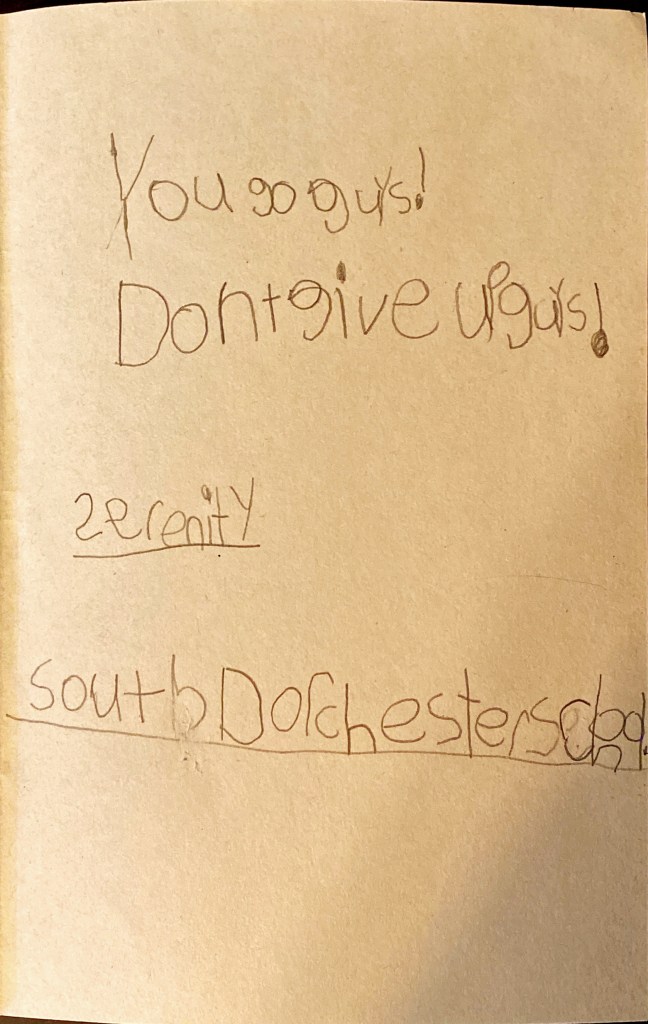 You go guys!
Dont give up guys!
zerenity
south Dorchester school.